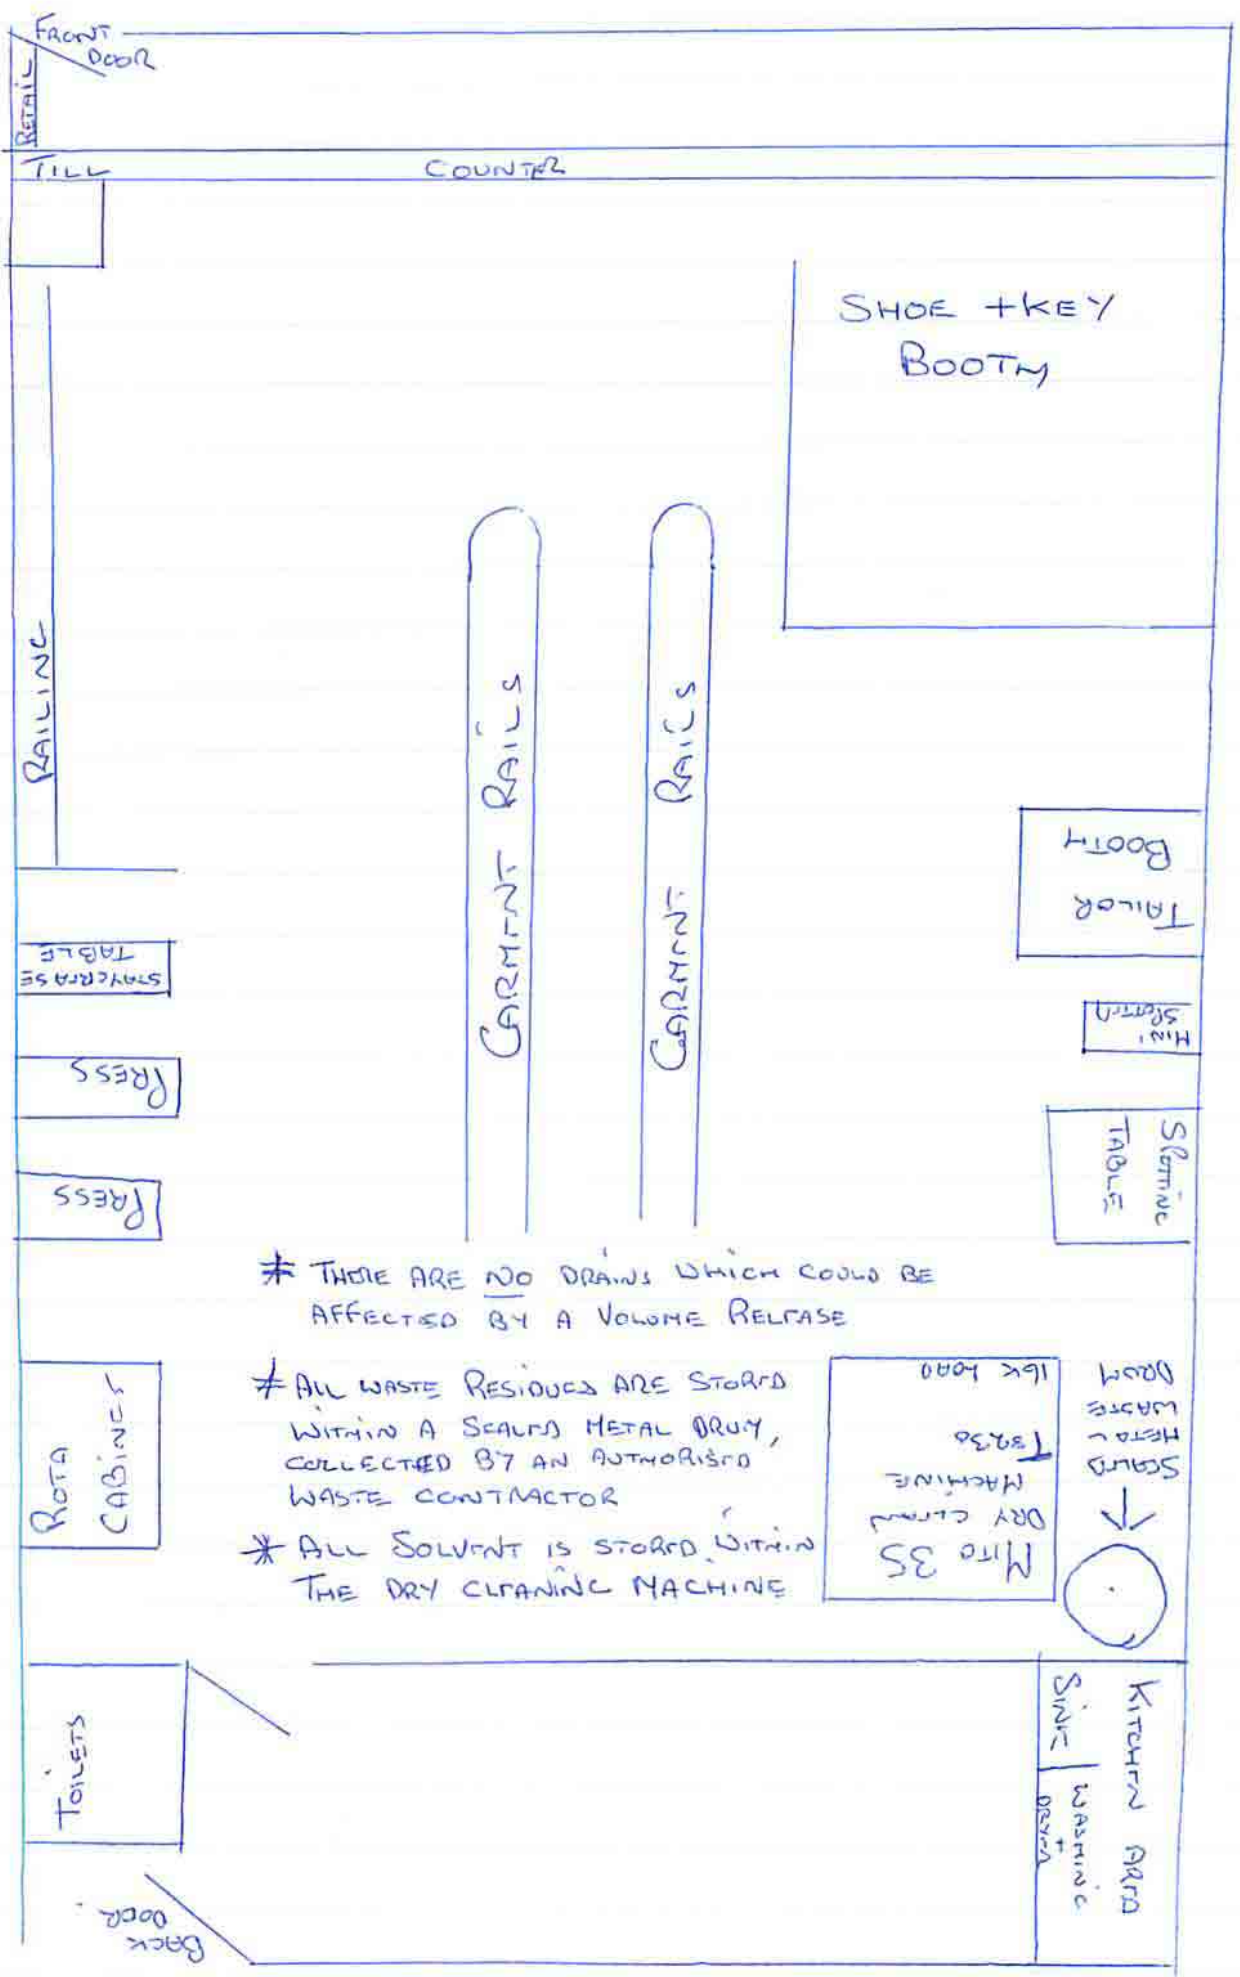 FRONT
DOOR
RETAIL
TILL
COUNTER
SHOE + KEY
BOOTH
RAILING
GARMENT RAILS
GARMENT RAILS
TAILOR
BOOTH
STAYCREASE
TABLE
MINI
PRESS
SPOTTING
TABLE
PRESS
* THERE ARE NO DRAINS WHICH COULD BE
AFFECTED BY A VOLUME RELEASE
* ALL WASTE RESIDUES ARE STORED
WITHIN A SEALED METAL DRUM,
COLLECTED BY AN AUTHORISED
WASTE CONTRACTOR
* ALL SOLVENT IS STORED WITHIN
THE DRY CLEANING MACHINE
ROTA
CABINET
MITO 35
DRY CLEAN
MACHINE
T3230
16K LOAD
SEALED
METAL
WASTE
DRUM
TOILETS
KITCHEN AREA
SINK
WASHING
+
DRYER
BACK
DOOR